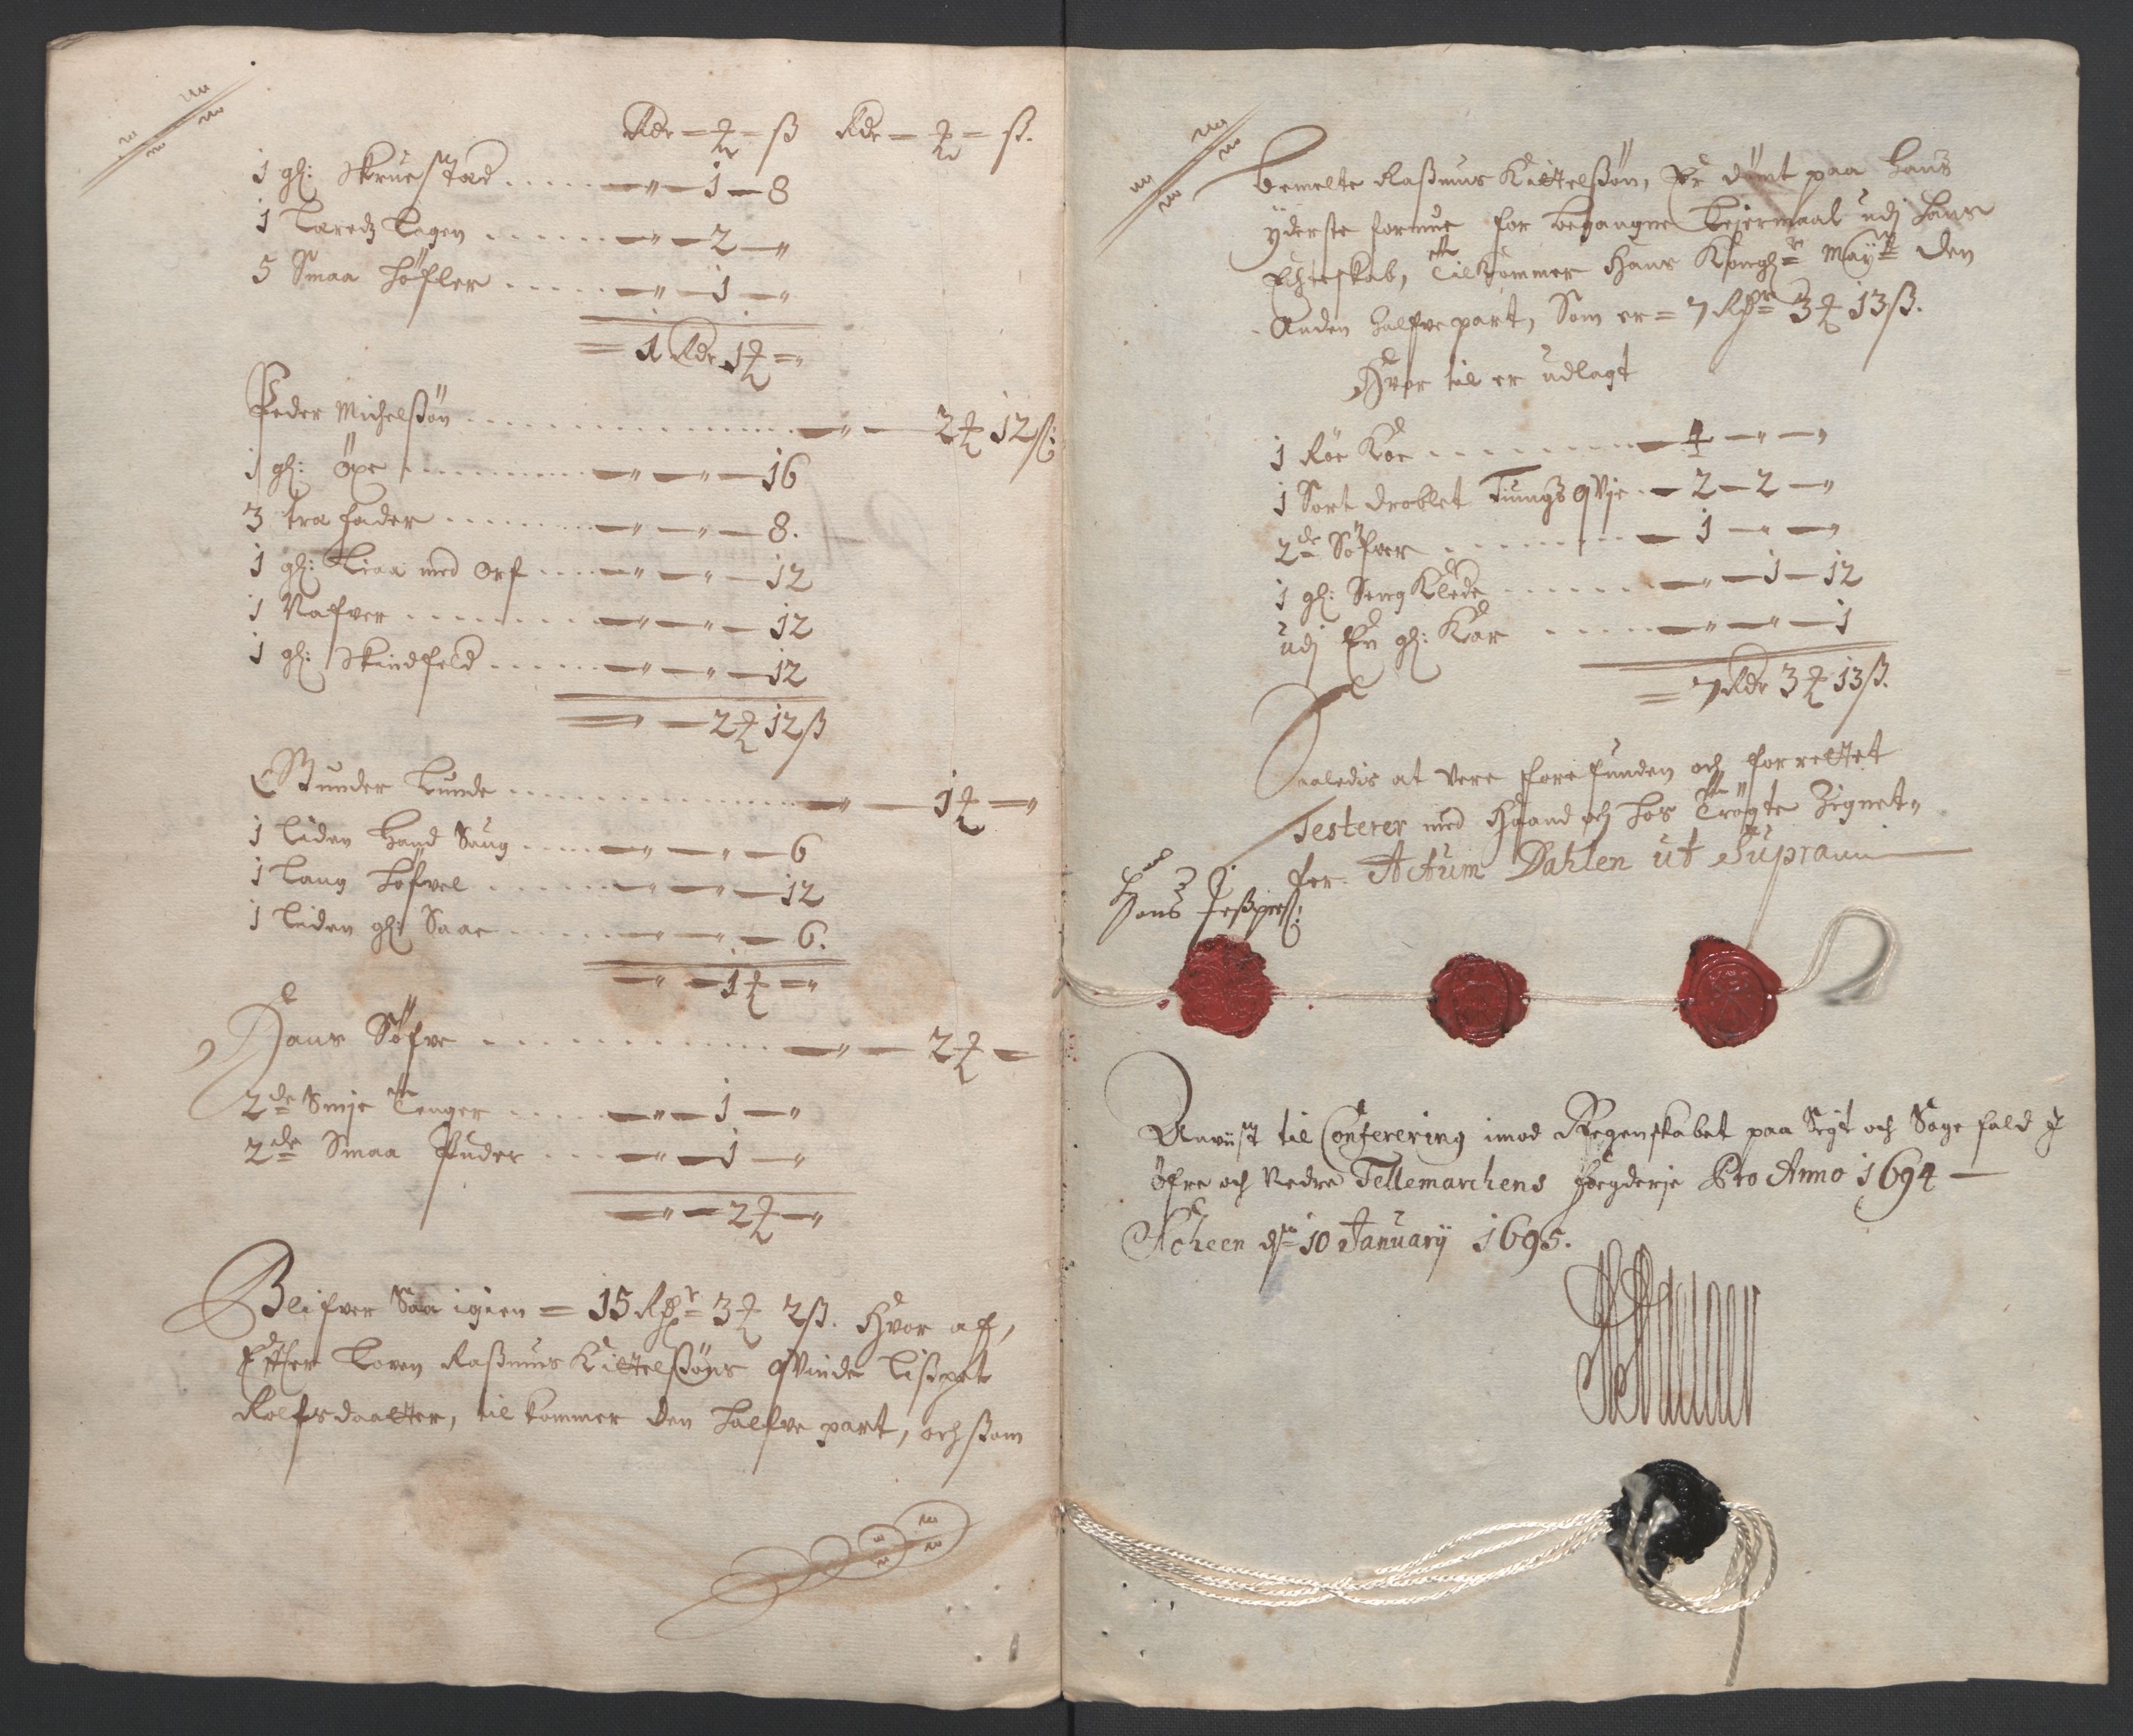 Rdr = ₰ = ß Rdr = ₰ = ß.
1 gl: Skruestad ..... — " — 1 — 8
1 Lareds Lagen ..... — " — 2 — "
5 Smaa Høfler ..... — " — 1 — "
= 1 Rdr 1 ₰ = "
Peder Michelßøn ..... — " — 2 ₰ 12 ß:
1 gl: Øxe ..... — " — " — 16
3 tra fader ..... — " — " — 8.
1 gl: Liaa med Orf ..... — " — " — 12
1 Nafver ..... — " — " — 12
1 gl: Skindfeld ..... — " — " — 12
= — 2 ₰ 12 ß
Gunder Lunde ..... — " — 1 ₰ — "
1 liden Hand Saug ..... — " — " — 6
1 Lang Høfvel ..... — " — " — 12
1 liden gl: Saae ..... — " — " — 6.
— " — 1 ₰ — "
Hans Søfve ..... — " — 2 ₰ —
2de Smje Tenger ..... — " — 1 — "
2de Smaa Puder ..... — " — 1 — "
— " — 2 ₰ — "
Blifver Saa igien = 15 Rdr 3 ₰ 2 ß. Hvor af,
Efter Loven Raßmus Kittelßøns qvinde Lißpet
Rolfsdaatter, til kommer den halfve part, och ßom
bemelte Raßmus Kittelßøn, Er dømt paa Hans
yderste formue for begangne Lejermaal udj Hans
Echteskab, Tilkommer Hans Kongl: May:tt den
Anden halfve part, Som er = 7 Rdr 3 ₰ 13 ß.
Hvor til er udlagt
1 Røe Koe ..... — 4 — " — "
1 Sort droblet Tuungs qvje .. — 2 — 2 — "
2de Søfver ..... — 1 — " — "
1 gl: Seng Klede ..... — " — 1 — 12
udj En gl: Kar ..... — " — " — 1
= 7 Rdr 3 ₰ 13 ß.
Saaledis at vere forefunden och forrettet
Testerer med Haand och hos Trøgte Zignet-
ter. Actum Dahlen ut Supra
Hans Jeßperß:
Anviist til Conferering imod Regenskabet paa Sigt och Sagefald I
Øfre och Nedre Tellemarchens fogderje Pro Anno 1694 —
Scheen d: 10 January 1695.